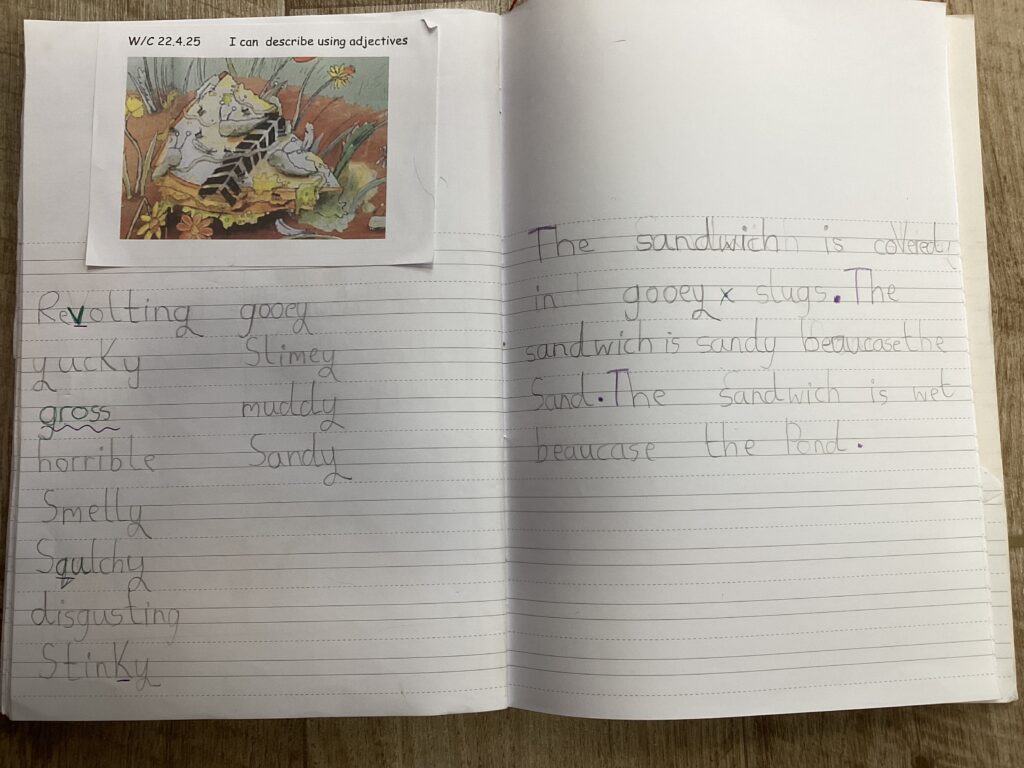 W/C 22.4.25 I can describe using adjectives
Revolting gooey
yucky Slimey
gross muddy
horrible Sandy
Smelly
Squlchy
disgusting
Stinky
The sandwich is covered
in gooey x slugs. The
sandwich is sandy beaucase the
Sand. The sandwich is wet
beaucase the Pond.